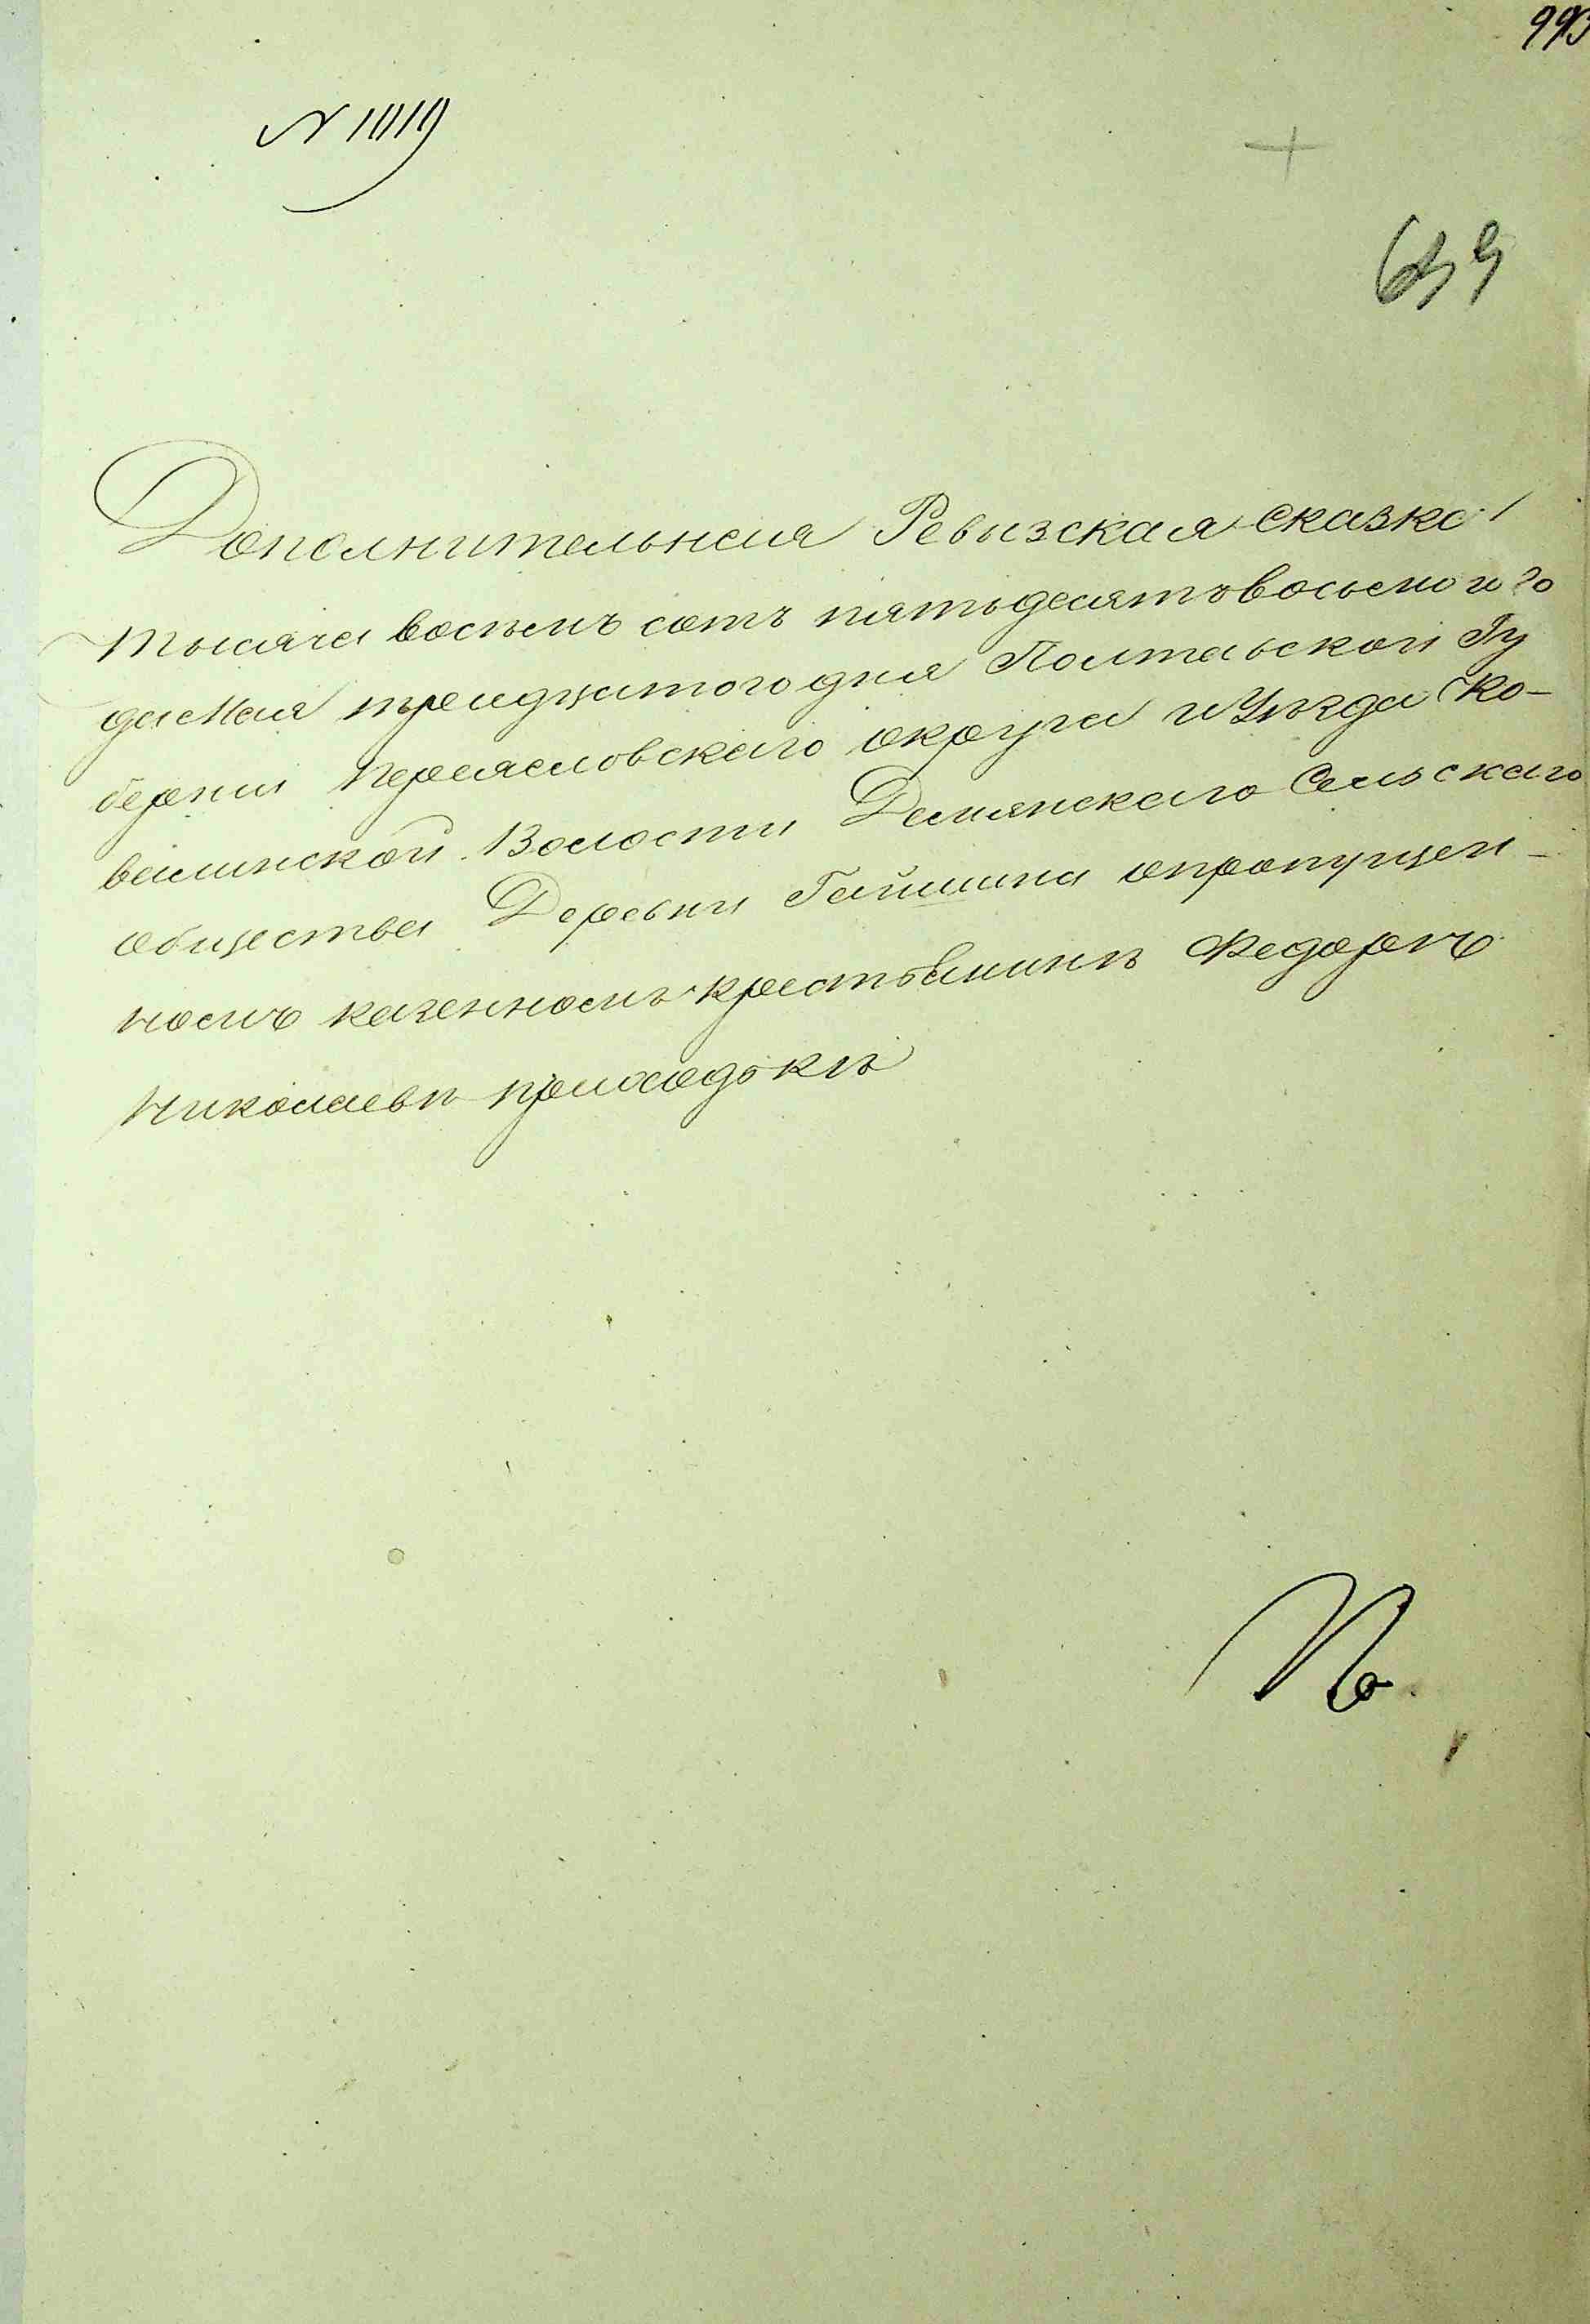 993
№ 1019
Дополнительная Ревызская сказка
тысяча восемь сотъ пятьдесятъвосьмого го
да Мая тридцатого дня Полтавской Гу
бернии Переясловскаго округа и Уѣзда Ко-
валинской Волости Демянскаго Сельскаго
общества Деревни Гайшина опропущен-
номъ казенномъ крестьянинѣ Федорѣ
Николаевѣ
По